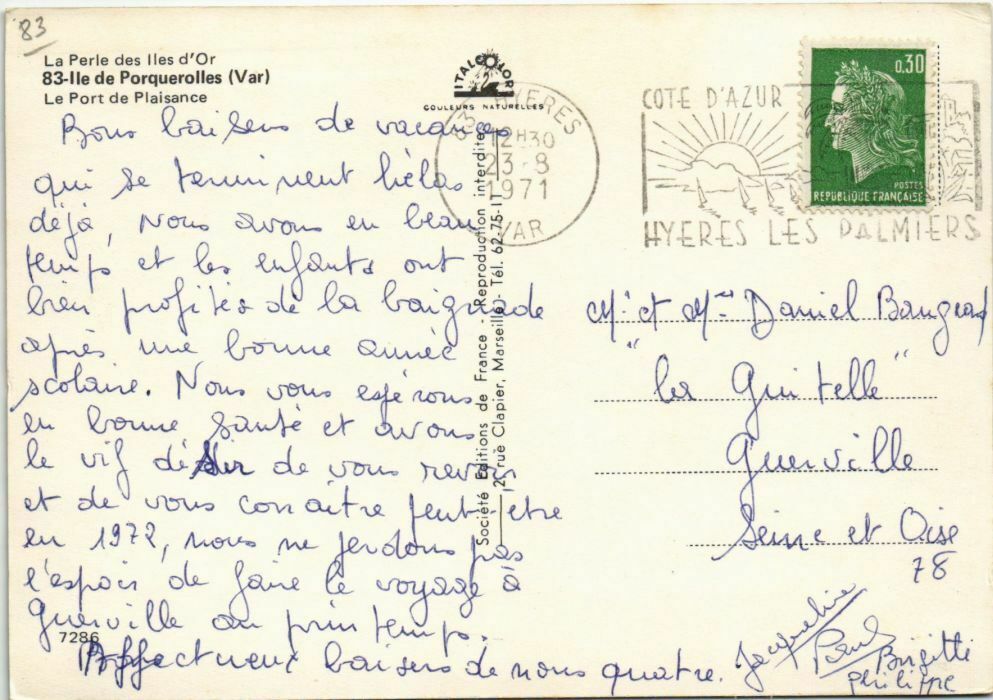 83
La Perle des Iles d'Or
83-Ile de Porquerolles (Var)
Le Port de Plaisance
ITALCOLOR
COULEURS NATURELLES
Bons baisers de vacances
qui se terminent hélas
déjà, nous avons eu beau
temps et les enfants ont
bien profités de la baignade
après une bonne année
scolaire. Nous vous espérons
en bonne santé et avons
le vif désir de vous revoir
et de vous connaître peut-être
en 1972, nous ne perdons pas
l'espoir de faire le voyage à
Guerville au printemps.
7286
Affectueux baisers de nous quatre.
Jacqueline
Paul
Brigitte
Philippe
Société Editions de France - Reproduction interdite
2, rue Clapier, Marseille - Tél. 62-75-17
83 HYERES
12H30
23-8
1971
VAR
COTE D'AZUR
HYERES LES PALMIERS
0,30
POSTES
REPUBLIQUE FRANÇAISE
Mr et Mme Daniel
"la Guitelle"
Guerville
Seine et Oise
78